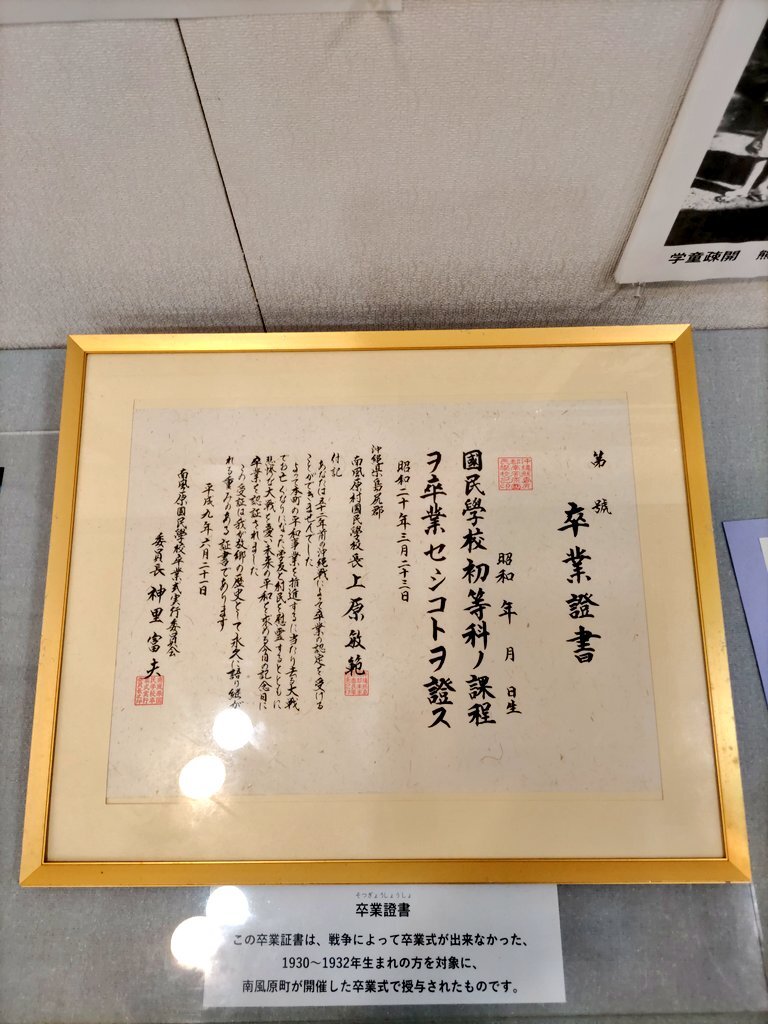 学童疎開 熊
第 號
卒業證書
昭和 年 月 日生
國民學校初等科ノ課程
ヲ卒業セシコトヲ證ス
昭和二十年三月二十三日
沖縄県島尻郡
南風原村國民學校長 上原敏範
付記
あなたは五十二年前の沖縄戦によって卒業の認定を受ける
ことができませんでした
よって本町の平和事業を推進するに当たり去る大戦
でお亡くなりになった学友と村民を慰霊するとともに
悲惨な大戦を憂い未来の平和を求める今日の記念日に
卒業を認証されました
この受証は我が故郷の歴史として永久に語り継が
れる重みのある証書であります
平成九年六月二十一日
南風原国民学校卒業式実行委員会
委員長 神里富夫
そつぎょうしょうしょ
卒業證書
この卒業証書は、戦争によって卒業式が出来なかった、
1930〜1932年生まれの方を対象に、
南風原町が開催した卒業式で授与されたものです。